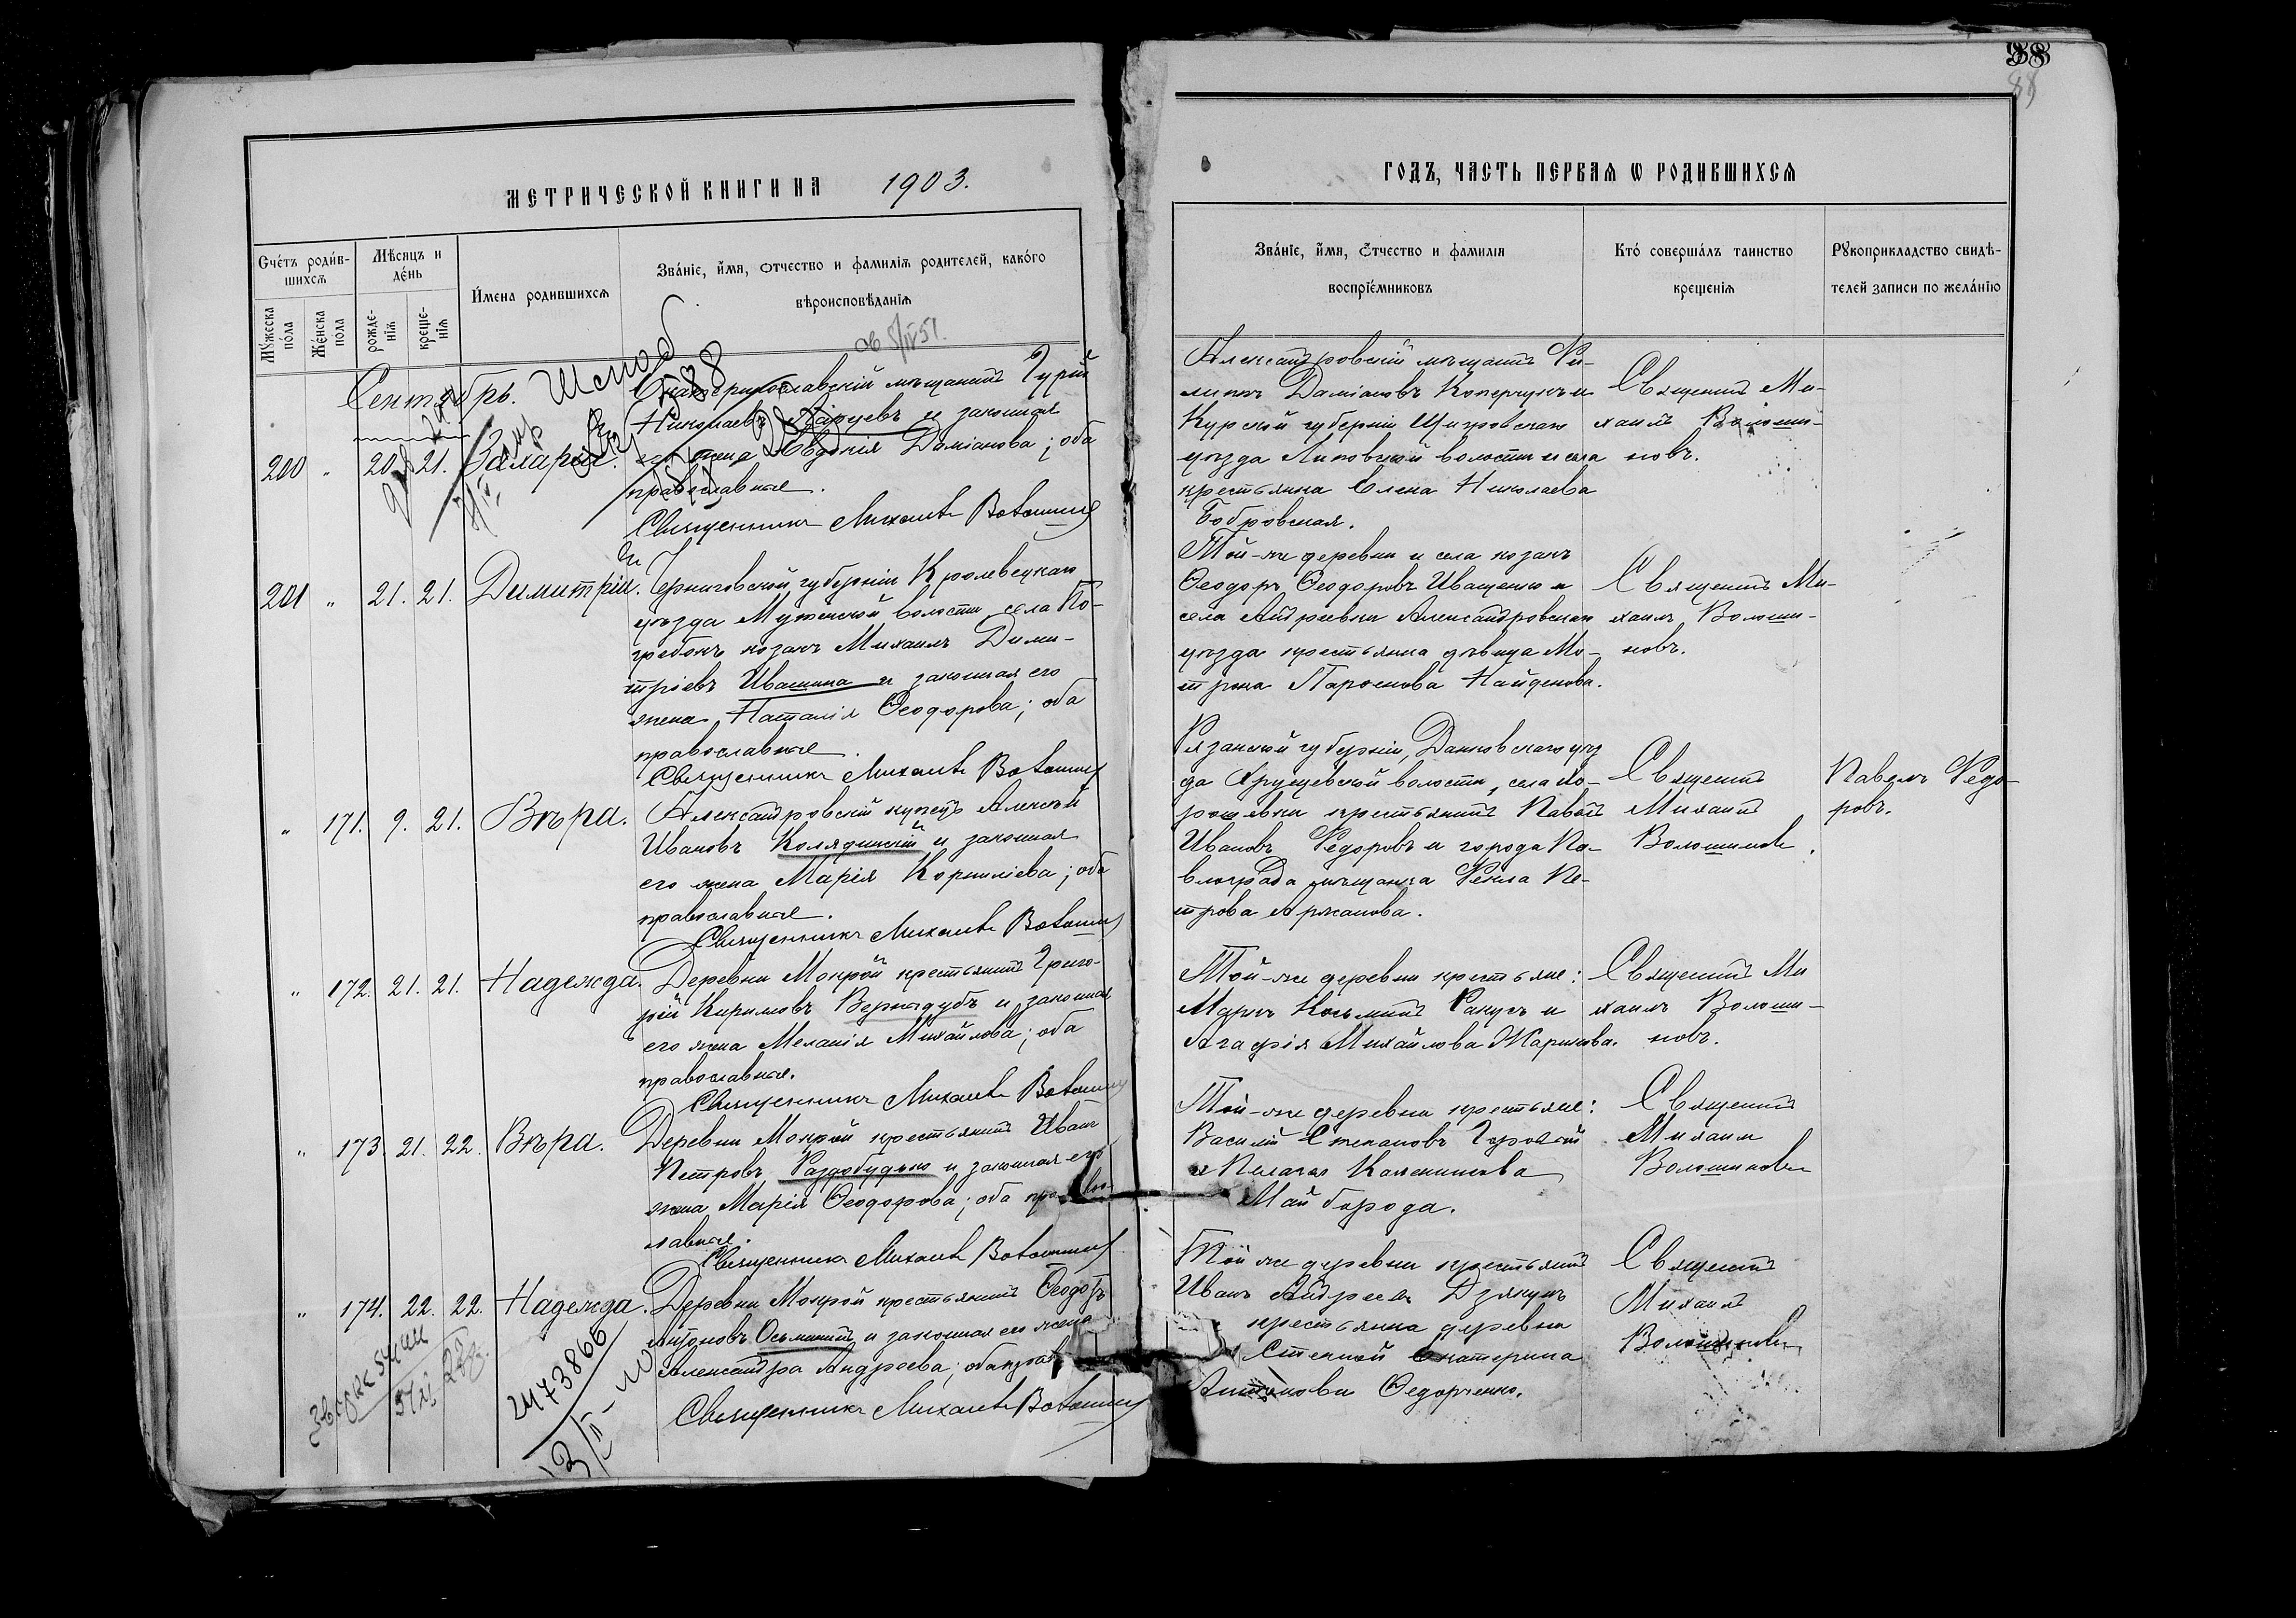 38
88
МЕТРИЧЕСКОЙ КНИГИ НА 1903.
ГОДЪ, ЧАСТЬ ПЕРВАЯ Ѡ РОДИВШИХСЯ
Счетъ родив-
шихся
Мужеска пола
Женска пола
Мѣсяцъ и
день
рожде-
нія
креще-
нія
Имена родившихся
Званіе, имя, отчество и фамилія родителей, какого
вѣроисповѣданія
Званіе, имя, Ѿтчество и фамилія
воспріемниковъ
Кто совершалъ таинство
крещенія
Рукоприкладство свидѣ-
телей записи по желанію
Сентябрь.
200 " 20. 21. Захарій.
Екатеринославскій мѣщанинъ Гурій
Николаевъ и законная
его жена Евдокія Даміанова; оба
православные.
Священникъ Михаилъ Волошинов
Александровскій мѣщанинъ Фи-
липпъ Даміановъ и
Курской губерніи Щигровскаго
уѣзда Липовской волости и села
крестьянка Елена Николаева
Бобровская.
Священникъ Ми-
хаилъ Волоши-
новъ.
201 " 21. 21. Димитрій.
Черниговской губерніи Кролевецкаго
уѣзда волости села По-
гребокъ козакъ Михаилъ Дими-
тріевъ Ивашина и законная его
жена Наталія Ѳеодорова; оба
православные.
Священникъ Михаилъ Волошинов
Той-же деревни и села козакъ
Ѳеодоръ Ѳеодоровъ Иващенко и
села Андреевки Александровскаго
уѣзда крестьянка дѣвица Мо-
трона Найденова.
Священникъ Ми-
хаилъ Волоши-
новъ.
" 171. 9. 21. Вѣра.
Александровскій купецъ Алексѣй
Ивановъ Колядинскій и законная
его жена Марія Корниліева; оба
православные.
Священникъ Михаилъ Волошинов
Рязанской губерніи, Данковскаго уѣз
да Хрущевской волости, села Хо-
рошевки крестьянинъ Павелъ
Ивановъ Федоровъ и города Па-
влограда мѣщанка Фекла Пе-
трова Аржанова.
Священникъ
Михаилъ
Волошиновъ.
Павелъ Федо-
ровъ.
" 172. 21. 21. Надежда.
Деревни Мокрой крестьянинъ Григо-
рій Кириловъ Вернидубъ и законная
его жена Меланія Михайлова; оба
православные.
Священникъ Михаилъ Волошинов
Той-же деревни крестьяне:
Маркъ Косьминъ и
Агафія Михайлова
Священникъ Ми
хаилъ Волоши-
новъ.
" 173. 21. 22. Вѣра.
Деревни Мокрой крестьянинъ Иванъ
Петровъ Раздобудько и законная его
жена Марія Ѳеодорова; оба право-
славные.
Священникъ Михаилъ Волошинов
Той-же деревни крестьяне:
Василій Степановъ Горовой
и Пелагія
Майборода.
Священникъ
Михаилъ
Волошиновъ
" 174. 22. 22. Надежда.
Деревни Мокрой крестьянинъ Ѳеодоръ
Осьминъ и законная его жена
Александра Андреева; оба прав
Священникъ Михаилъ Волошинов
Той же деревни крестьянинъ
Иванъ Андреевъ Дзякунъ
крестьянка деревни
Степной Екатерина
Антонова Федорченко.
Священникъ
Михаилъ
Волошиновъ
2473866